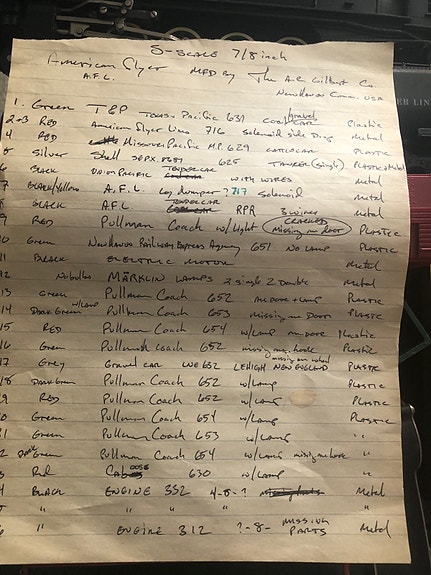 S-SCALE 7/8 inch
American Flyer MFD By The A.C. Gilbert Co.
A.F.L. New Haven Conn. USA
1. Green T&P Texas Pacific 631 Gravel Car Plastic
2+3 RED American Flyer Lines 716 Solenoid side Dump Metal
4 RED Missouri Pacific M.P. 629 CATTLECAR PLASTIC
5 Silver Shell SEPX 8681 625 TANKER (single) PLASTIC & Metal
6 BLACK UNION PACIFIC TENDERCAR WITH WIRES Metal
7 BLACK/Yellow A.F.L. Log dumper ?717 Solenoid Metal
8 BLACK A.F.L. TENDERCAR RPR 3 wires Metal
9 RED Pullman Coach w/Light CRACKED Missing one door PLASTIC
10 Green New Haven Railway Express Agency 651 NO LAMP PLASTIC
11 BLACK ELECTRIC MOTOR Metal
12 No bulbs MÄRKLIN LAMPS 2 single 2 Double Metal
13 Green Pullman Coach 652 no door + lamp PLASTIC
14 Dark Green w/lamp Pullman Coach 653 missing one Door PLASTIC
15 RED Pullman Coach 654 w/lamp no door Plastic
16 Green Pullman Coach 652 missing one hook Plastic
17 Grey Gravel car 632 LEHIGH NEW ENGLAND missing one wheel PLASTIC
18 Dark Green Pullman Coach 652 w/LAMP PLASTIC
9 RED Pullman Coach 652 w/LAMP PLASTIC
0 Green Pullman Coach 654 w/Lamp PLASTIC
1 Green Pullman Coach 653 w/Lamp "
2 DARK Green Pullman Coach 654 w/Lamp missing one hook "
3 Red Caboose 630 w/LAMP "
4 BLACK ENGINE 332 4-8-? Metal
5 " " " " "
6 " ENGINE 312 ?-8- MISSING PARTS Metal